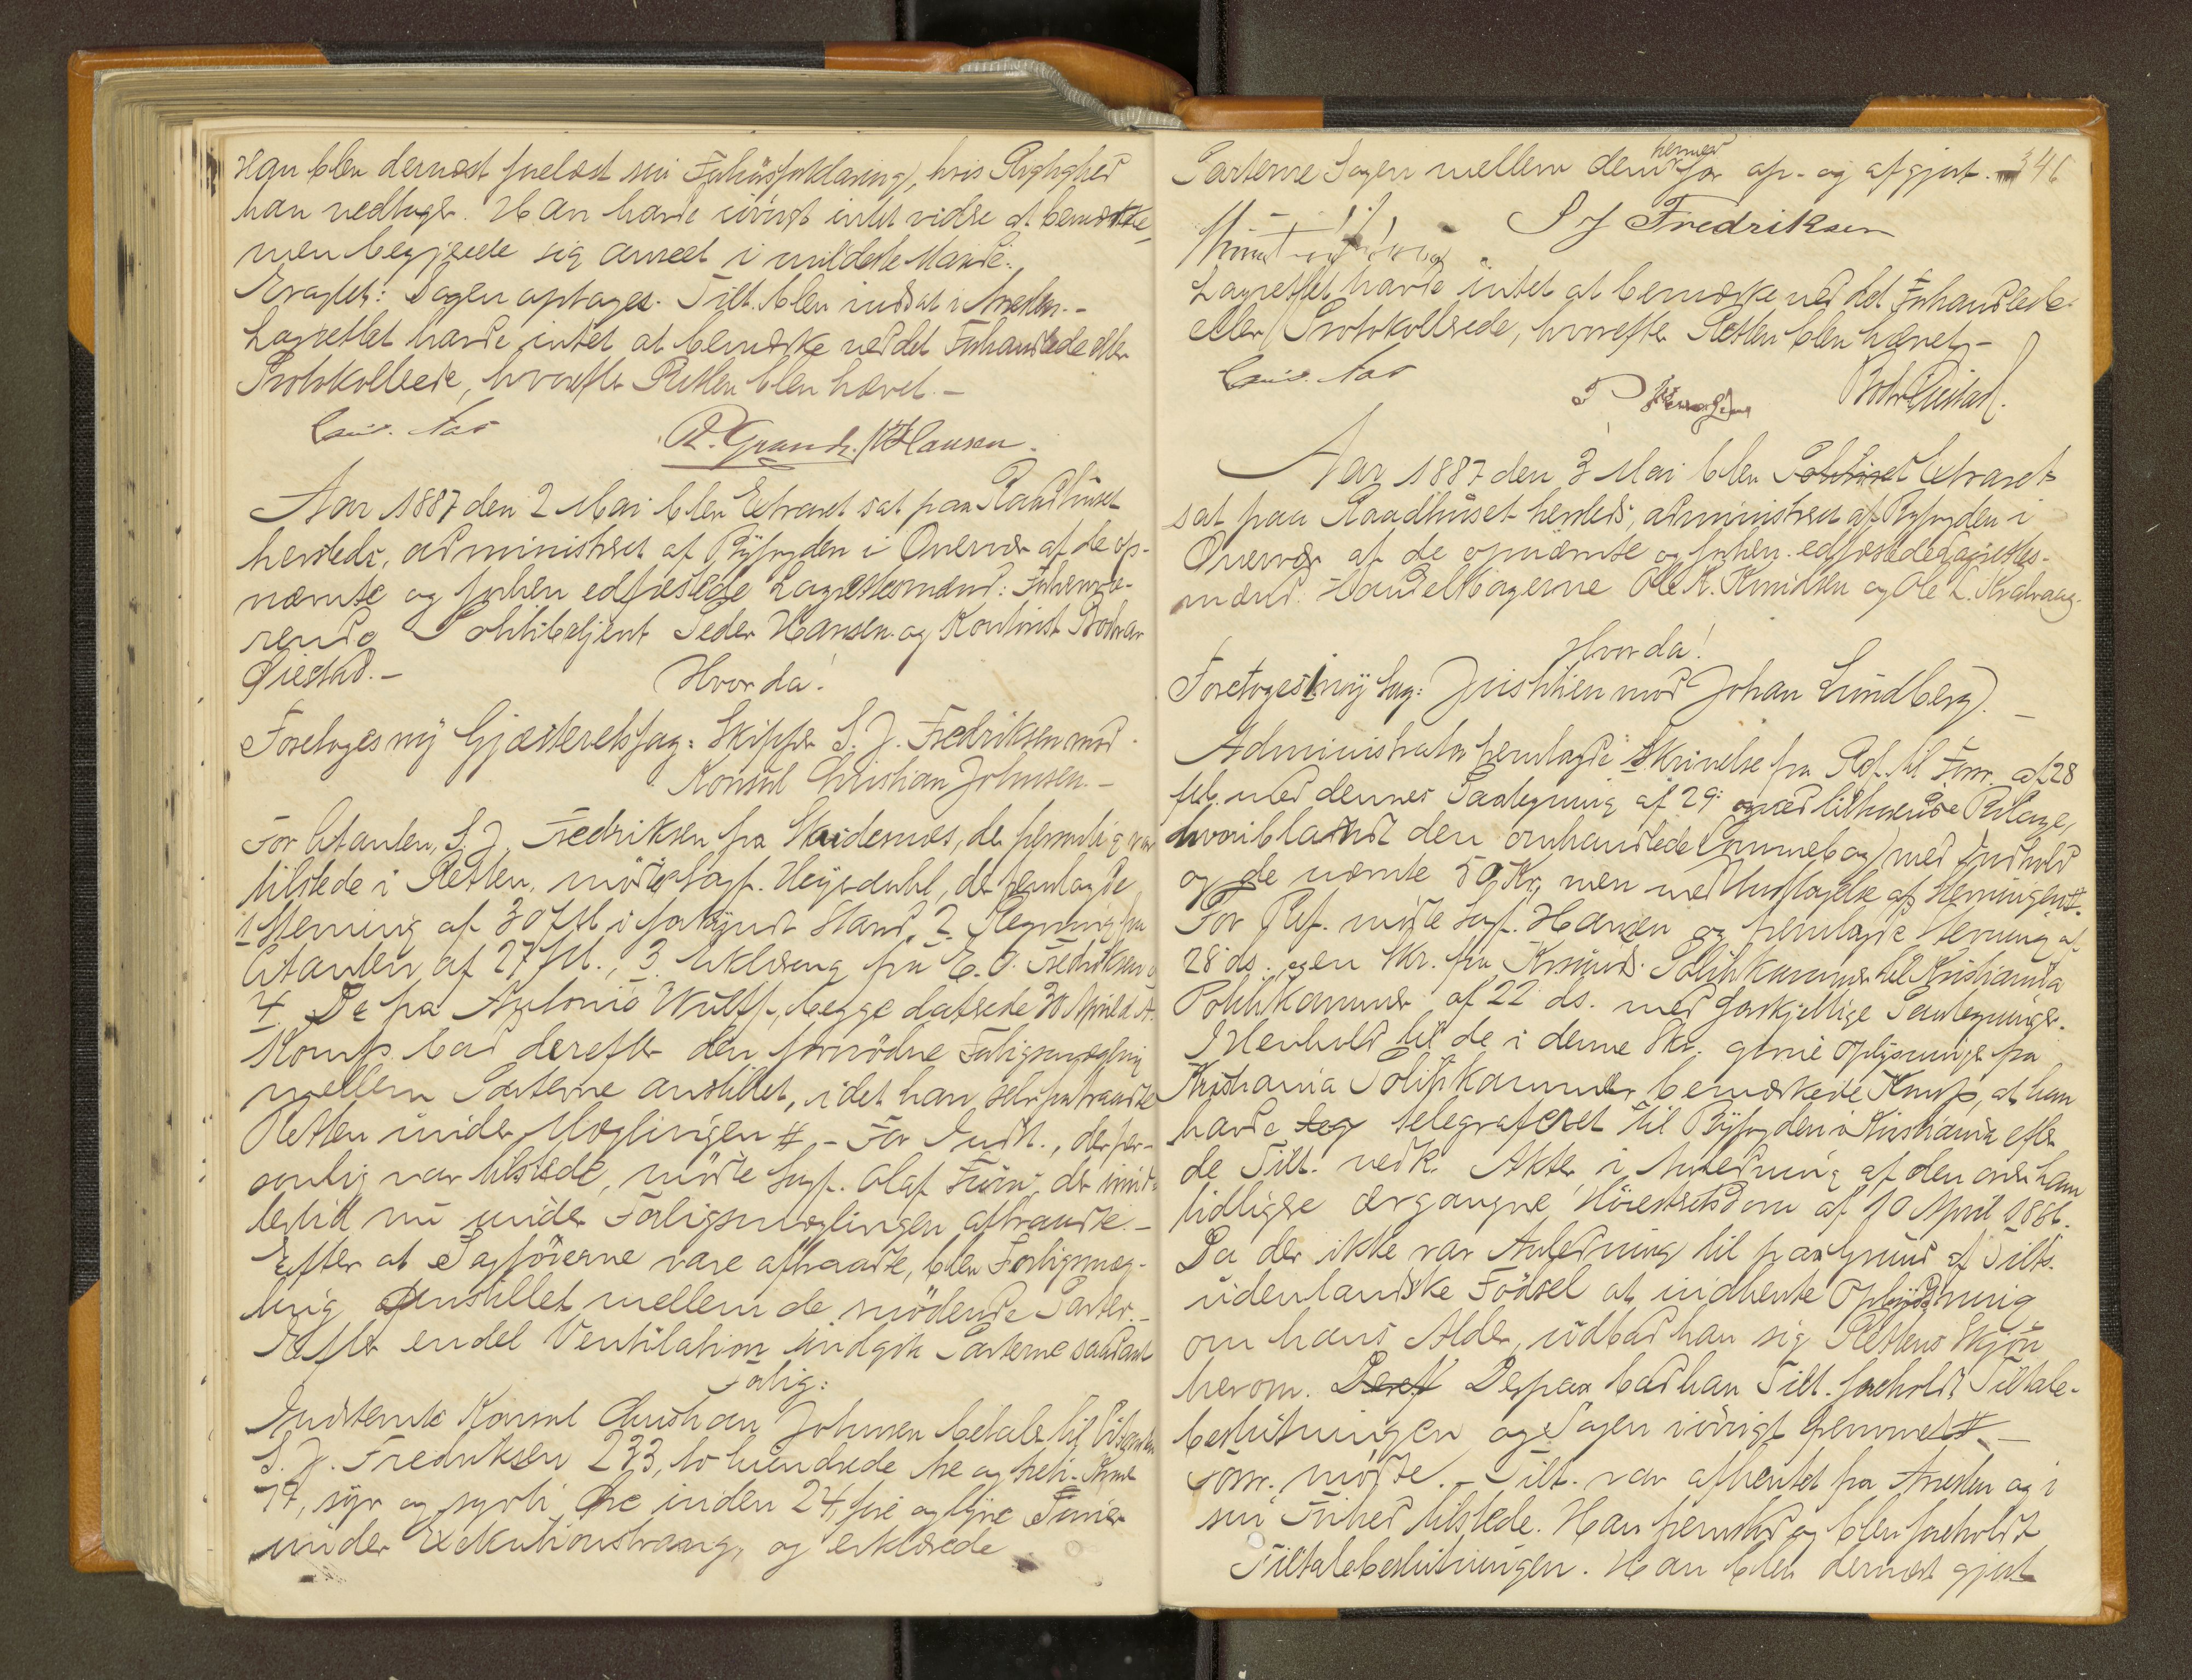 Han blev dernæst forelæst sin Forhørsforklaring, hvis Rigtighed
han vedtager. Han havde iøvrigt intet videre at bemærke
men begjærede sig anseet i mildeste Maade.
Eragtet: Sagen optages. Tilt. blev indsat i Arresten.-
Lagrettet havde intet at bemærke ved det Forhandlede eller
Protokollerede, hvorefter Retten blev hævet.-
P. Hansen.
Aar 1887 den 2 Mai blev Extraret sat paa Raadhuset
hersteds, administreret af Byfogden i Overvær af de op-
nævnte og forhen edfæstede Lagrettesmænd: Forhenvæ-
rende Politibetjent Peder Hansen og Kontorist Bodvar
Øiestad.-
Hvorda!
Foretoges ny Gjæsteretssag: Skipper S. J. Fredriksen mod
Konsul Christian Johnsen.-
For Citanten, S. J. Fredriksen fra, der personlig var
tilstede i Retten, mødte Sagf. Heyerdahl, der fremlagde
1 Stevning af 30 f.M. i forkyndt Stand, 2 Regning fra
Citanten af 27 f.M., 3 Erklæring fra E. O. Fredriksen o
4 Do fra Antonio Wulff, begge daterede 30 April d. A.
Komp. bad derefter den fornødne Forligsmægling
mellem Parterne anstillet, idet han selv fratraadte
Retten under Mæglingen #.- For Indst., der per-
sonlig var tilstede, mødte Sagf. Olaf, der imid-
lertid nu under Forligsmæglingen aftraadte.-
Efter at Sagførerne vare aftraadte, blev Forligsmæg-
ling anstillet mellem de mødende Parter.-
Efter endel Ventilation indgik Parterne saadant
Forlig:
Indstevnte Konsul Christian Johnsen betaler til Citanten
S. J. Fredriksen 233, to hundrede tre og treti Kroner
77, syv og sytti Øre inden 24, fire og tyve Timer
under Exekutionstvang, og erklærede
346
Parterne Sagen mellem dem hermed for op- og afgjort.
S J Fredriksen
Lagrettet havde intet at bemærke ved det Forhandlede
eller Protokollerede, hvorefter Retten blev hævet.-
P Hansen
Bodv Øiestad.
Aar 1887 den 3 Mai blev Extraret
sat paa Raadhuset hersteds, administreret af Byfogden i
Overvær af de opnævnte og forhen edfæstede Lagrettes-
mænd: Handelsborgerne Ole K. Knudsen og Ole L.
Hvorda!
Foretoges ny Sag: Justitien mod Johan Lundberg.-
Administrator fremlagde Skrivelse fra Pol. til Forr. af 28
feb. med dennes Paategning af 29 og med tilhørende Bilage,
hvoriblandt den omhandlede Lommebog med Indhold
og de nævnte 50 Kr, men med Undtagelse af Stevningen #.
For Pol. mødte Sagf. Hansen og fremlagde Stevning af
28 ds., og en Skr. fra Krsands. Politikammer til Kristiania
Politikammer af 22 ds. med forskjellige Paategninger.
I Henhold til de i denne Skr. givne Oplysninger fra
Kristiania Politikammer bemærkede Komp, at han
havde telegraferet til Byfogden i Kristiania efter
de Tilt. vedk. Akter i Anledning af den over ham
tidligere ergangne Høiesteretsdom af 10 April 1886.
Da der ikke var Anledning til paa Grund af Tilts.
udenlandske Fødsel at indhente Oplysning
om hans Alder, udbad han sig Rettens Skjøn
herom. Derpaa bad han Tilt. foreholdt Tiltale-
beslutningen og Sagen iøvrigt fremmet #.-
Forsv. mødte.- Tilt. var afhentet fra Arresten og i
sin Frihed tilstede. Han fremstod og blev foreholdt
Tiltalebeslutningen. Han blev dernæst gjort